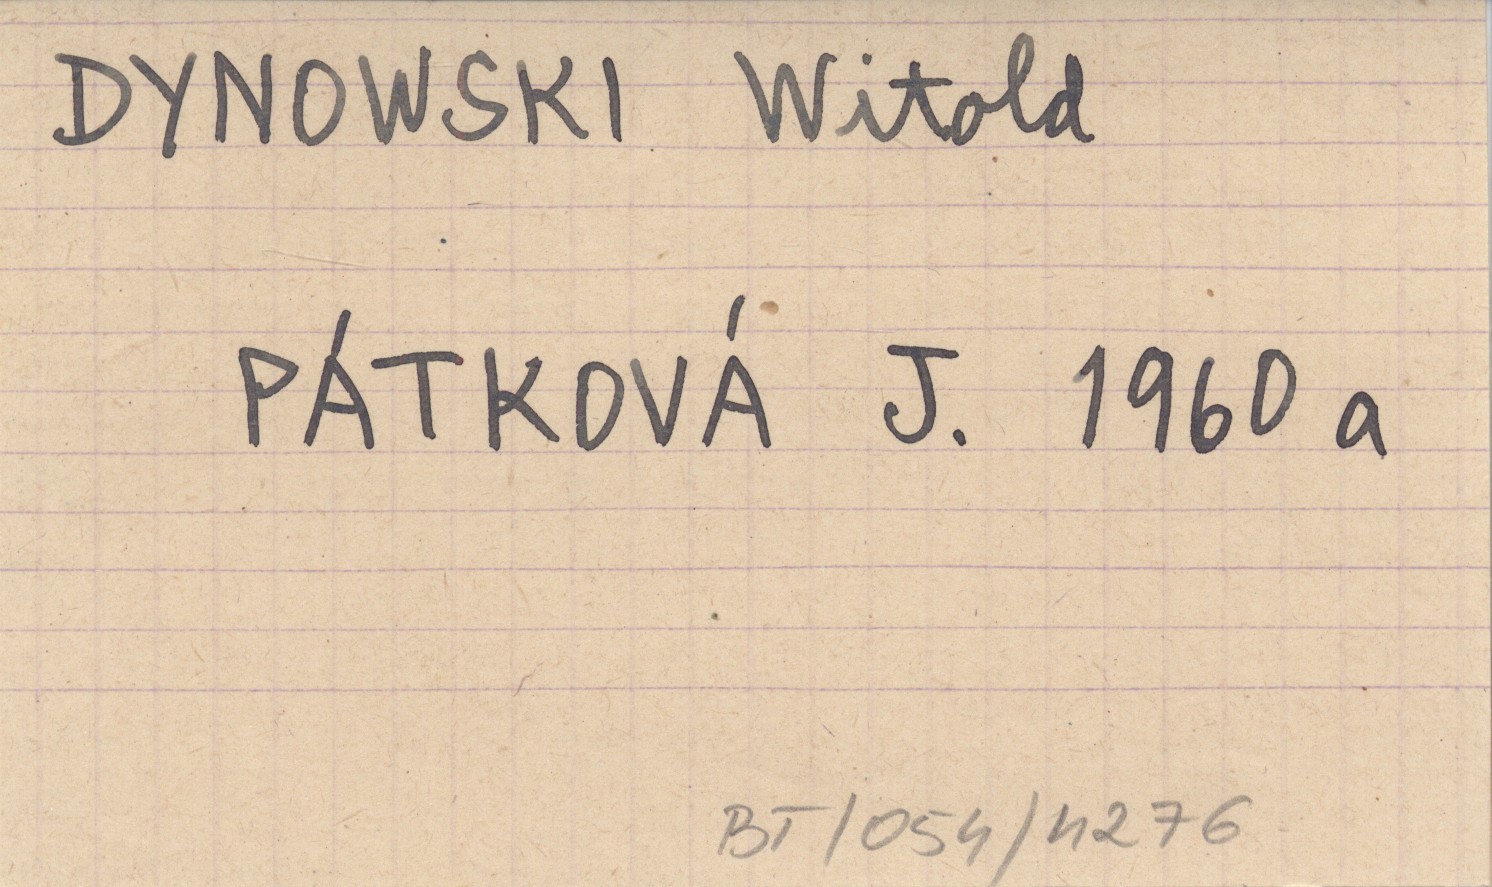 DYNOWSKI Witold
PÁTKOVÁ J. 1960 a
BT/054/4276